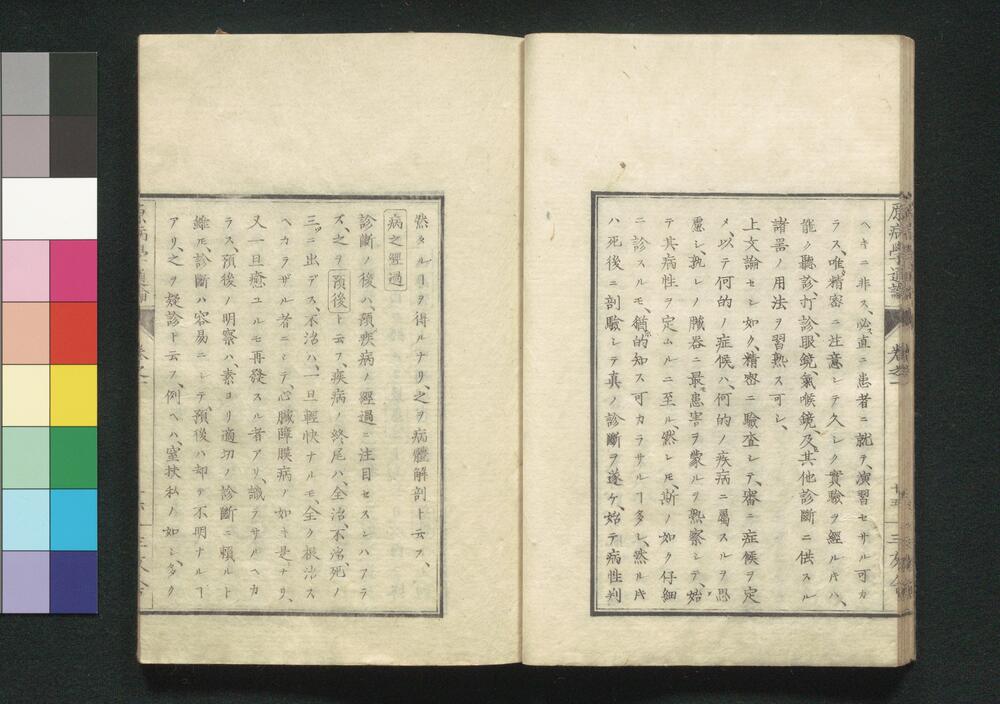 ヘキニ非ス、必直ニ患者ニ就テ、演習セサル可カ
ラス、唯精密ニ注意シテ久シク實驗ヲ經ルキハ、
能ク聽診、打診、眼鏡、氣喉鏡、及其他診斷ニ供スル
諸器ノ用法ヲ習熟ス可シ、
上文論セシ如ク、精密ニ驗査シテ、審ニ症候ヲ定
メ、以テ何的ノ症候ハ、何的ノ疾病ニ屬スルヲ思
慮シ、孰レノ臓器ニ最患害ヲ蒙ルヲ熟察シテ、始
テ其病性ヲ定ムルニ至ル、然レ𪜈、斯ノ如ク仔細
ニ診スルモ、猶的知ス可カラサルヿ多シ、然ルキ
ハ死後ニ剖驗シテ真ノ診斷ヲ遂ケ、始テ病性判
然タルヿヲ得ルナリ、之ヲ病體解剖ト云フ、
病之經過
診斷ノ後ハ、預疾病ノ經過ニ注目セスンハアラ
ズ、之ヲ預後ト云フ、疾病ノ終尾ハ、全治、不治、死ノ
三ニ出デス、不治ハ、一旦輕快ナルモ、全ク根治ス
ヘカラザル者ニシテ、心臓障膜病ノ如キ是ナリ、
又一旦癒ユルモ再發スル者アリ、識ラサルヘカ
ラス、預後ノ明察ハ、素ヨリ適切ノ診斷ニ頼ルト
雖𪜈、診斷ハ容易ニシテ、預後ハ却テ不明ナルヿ
アリ、之ヲ疑診ト云フ、例ヘハ、窒扶私ノ如シ、多ク
原病學通論
卷之一
十五